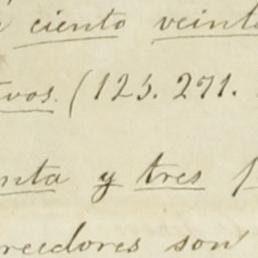 ciento veint
vos. (125. 271.
nta y tres p
reedores son